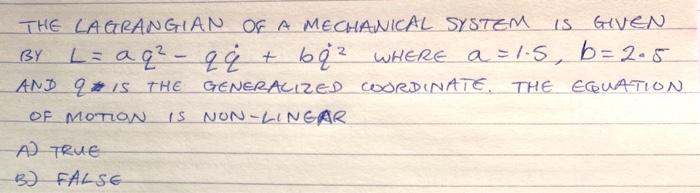 THE LAGRANGIAN OF A MECHANICAL SYSTEM IS GIVEN
BY L = aq² - qq̇ + bq̇² WHERE a = 1.5, b = 2.5
AND q IS THE GENERALIZED COORDINATE. THE EQUATION
OF MOTION IS NON-LINEAR
A) TRUE
B) FALSE